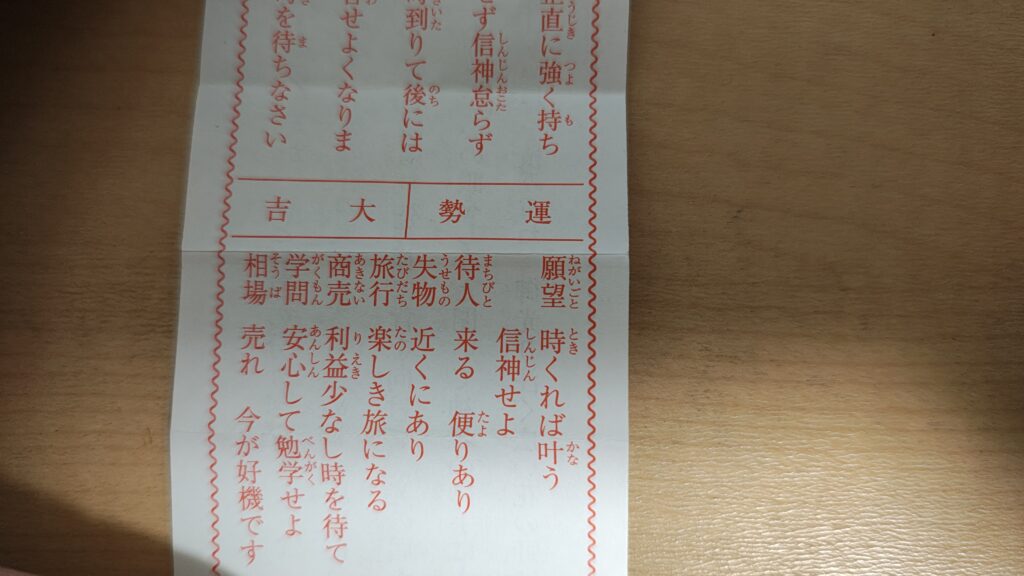 直に強く持ち
ず信神怠らず
到りて後には
せよくなりま
を待ちなさい
運勢 大吉
願望 時くれば叶う
信神せよ
待人 来る 便りあり
失物 近くにあり
旅行 楽しき旅になる
商売 利益少なし時を待て
学問 安心して勉学せよ
相場 売れ 今が好機です